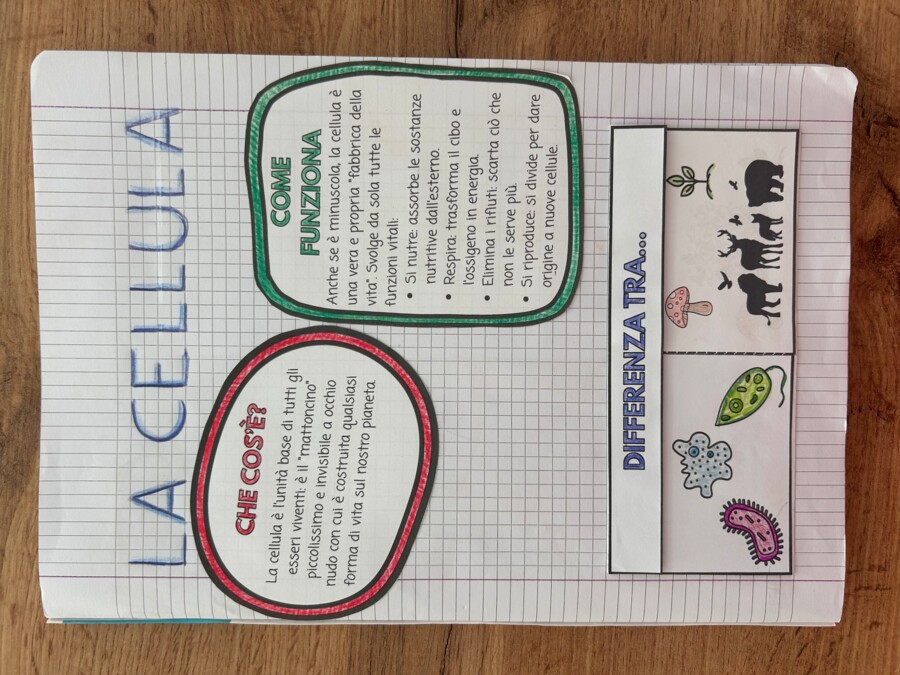 LA CELLULA
CHE COS'È?
La cellula è l'unità base di tutti gli
esseri viventi: è il "mattoncino"
piccolissimo e invisibile a occhio
nudo con cui è costruita qualsiasi
forma di vita sul nostro pianeta
COME
FUNZIONA
Anche se è minuscola, la cellula è
una vera e propria "fabbrica della
vita". Svolge da sola tutte le
funzioni vitali:
• Si nutre: assorbe le sostanze
nutritive dall'esterno.
• Respira: trasforma il cibo e
l'ossigeno in energia.
• Elimina i rifiuti: scarta ciò che
non le serve più.
• Si riproduce: si divide per dare
origine a nuove cellule.
DIFFERENZA TRA...